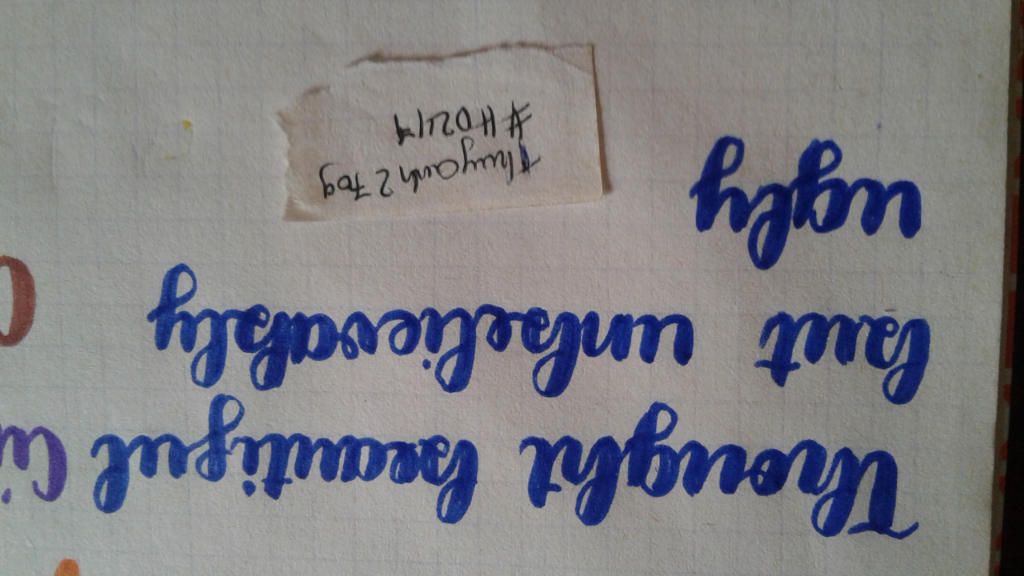 Thought beautiful
but unbelievably
ugly
Thuyanh2709